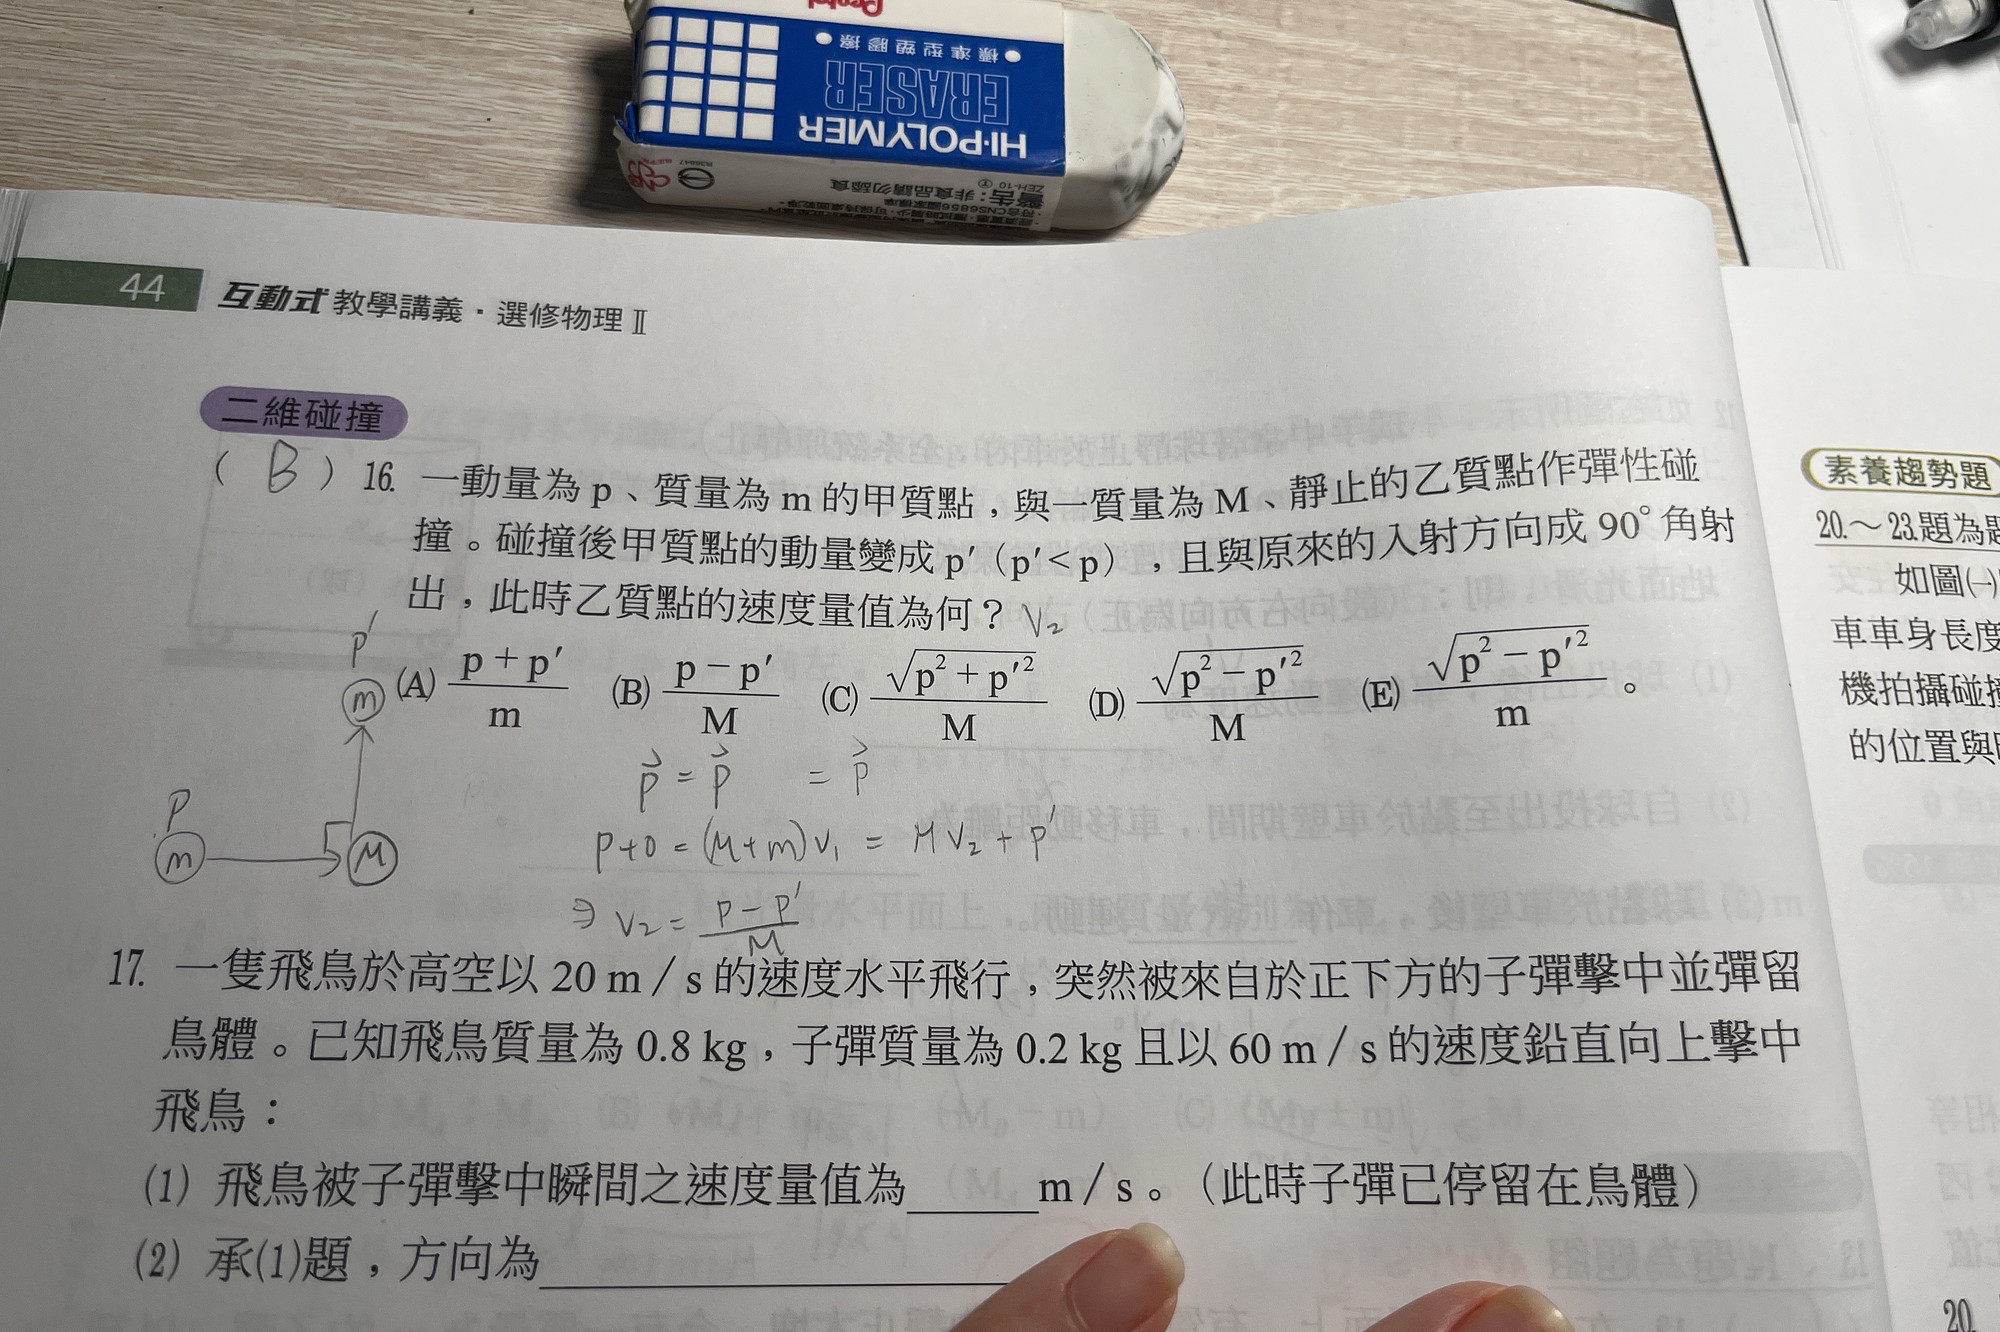 Pentel
標準型塑膠擦
ERASER
HI-POLYMER
ZEH-10
警告:非食品請勿舔食
44
互動式教學講義·選修物理Ⅱ
二維碰撞
(B)16. 一動量為 p、質量為 m 的甲質點,與一質量為 M、靜止的乙質點作彈性碰
撞。碰撞後甲質點的動量變成 p′(p′<p),且與原來的入射方向成 90°角射
出,此時乙質點的速度量值為何? V₂
(A) (p+p′)/m (B) (p−p′)/M (C) √(p²+p′²)/M (D) √(p²−p′²)/M (E) √(p²−p′²)/m。
p′
m
P
m
M
p⃗ = p⃗ = p⃗
P+0 = (M+m)V₁ = MV₂+P′
⇒ V₂ = (P−P′)/M
17. 一隻飛鳥於高空以 20 m/s 的速度水平飛行,突然被來自於正下方的子彈擊中並彈留
鳥體。已知飛鳥質量為 0.8 kg,子彈質量為 0.2 kg 且以 60 m/s 的速度鉛直向上擊中
飛鳥:
(1) 飛鳥被子彈擊中瞬間之速度量值為______m/s。(此時子彈已停留在鳥體)
(2) 承(1)題,方向為
素養趨勢題
20.~23.題為題
如圖㈠
車車身長度
機拍攝碰撞
的位置與
20.